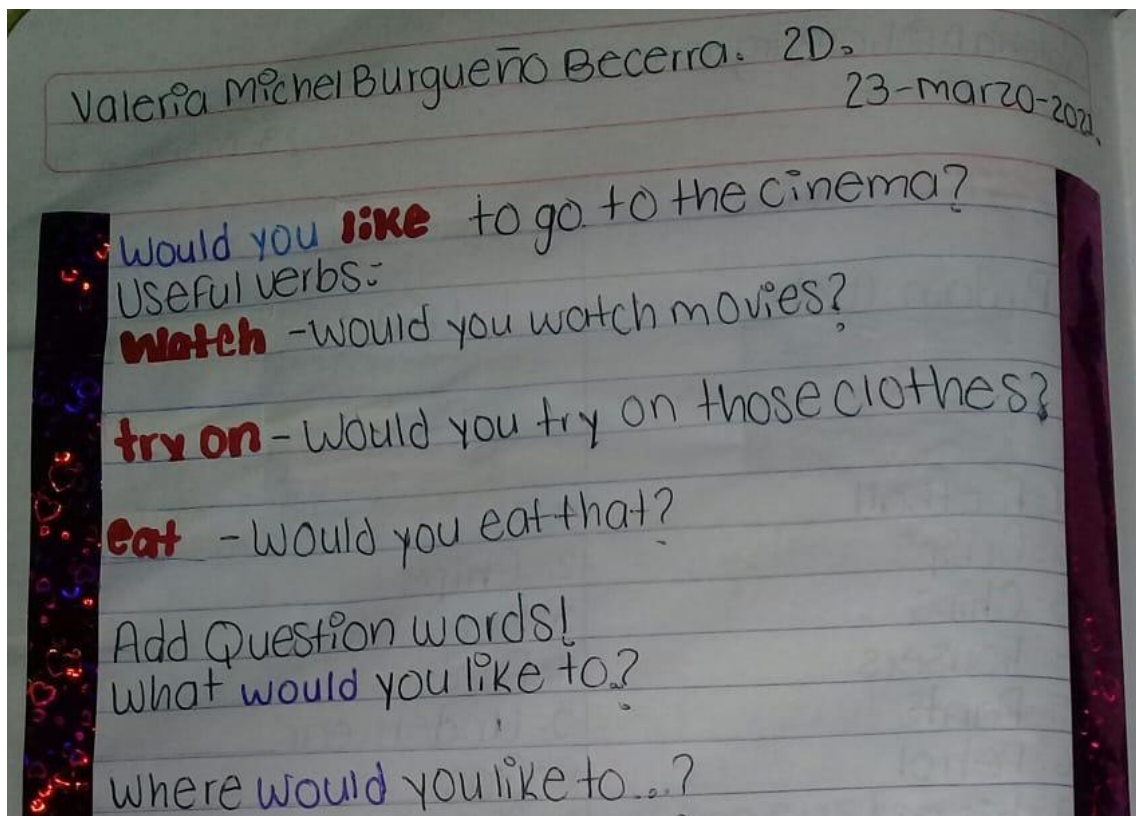 Valeria Michel Burgueño Becerra. 2D.
23-marzo-2021.
Would you like to go to the cinema?
Useful verbs:
Watch -would you watch movies?
try on - Would you try on those clothes?
eat - Would you eat that?
Add Question words!
What would you like to..?
Where would you like to...?